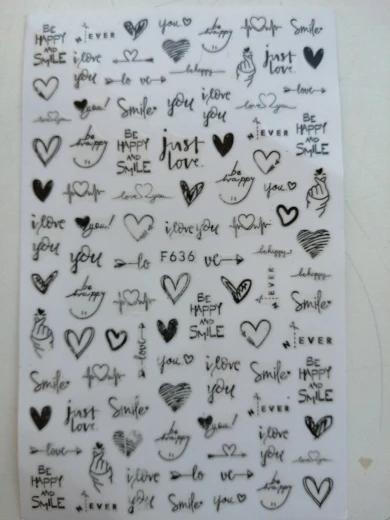 BE HAPPY AND SMILE
EVER
you
be happy
Smile
i love you
just love.
behappy
lo ve
love
you!
Smile
you
i love you
love you
EVER
be happy
BE HAPPY AND SMILE
just love.
BE HAPPY AND SMILE
love you
be happy
you
i love you
you!
i love you
behappy
you
lo
F636
ve
behappy
be happy
EVER
BE HAPPY AND SMILE
Smile
love
EVER
you
i love you
BE HAPPY AND SMILE
Smile
Smile
just love.
Smile
EVER
you!
i love you
love
be happy
BE HAPPY AND SMILE
i love you
lo ve
be happy
EVER
Smile
you